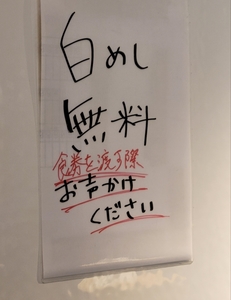 白めし
無料
食券を渡す際
お声かけ
ください